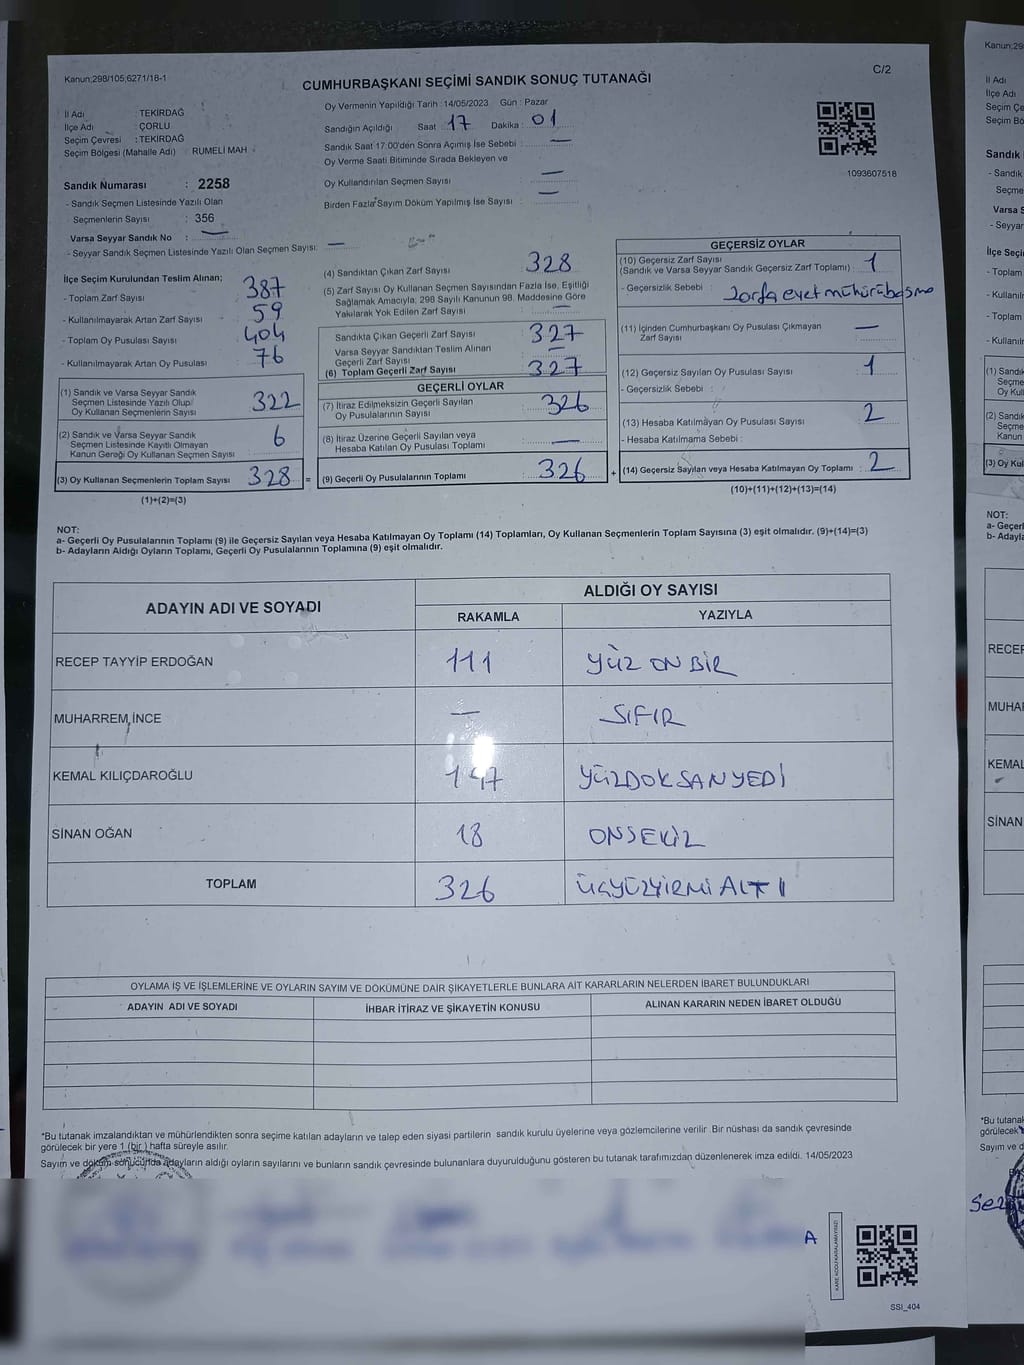 Kanun:298/105,6271/18-1
C/2
CUMHURBAŞKANI SEÇİMİ SANDIK SONUÇ TUTANAĞI
İl Adı : TEKİRDAĞ
İlçe Adı : ÇORLU
Seçim Çevresi : TEKİRDAĞ
Seçim Bölgesi (Mahalle Adı) RUMELİ MAH
Sandık Numarası : 2258
- Sandık Seçmen Listesinde Yazılı Olan
Seçmenlerin Sayısı : 356
Varsa Seyyar Sandık No : —
- Seyyar Sandık Seçmen Listesinde Yazılı Olan Seçmen Sayısı: —
Oy Vermenin Yapıldığı Tarih : 14/05/2023 Gün : Pazar
Sandığın Açıldığı Saat : 17 Dakika : 01
Sandık Saat 17:00'den Sonra Açılmış İse Sebebi : —
Oy Verme Saati Bitiminde Sırada Bekleyen ve
Oy Kullandırılan Seçmen Sayısı : —
Birden Fazla Sayım Döküm Yapılmış İse Sayısı : —
1093607518
İlçe Seçim Kurulundan Teslim Alınan;
- Toplam Zarf Sayısı : 387
- Kullanılmayarak Artan Zarf Sayısı : 59
- Toplam Oy Pusulası Sayısı : 404
- Kullanılmayarak Artan Oy Pusulası : 76
(1) Sandık ve Varsa Seyyar Sandık
Seçmen Listesinde Yazılı Olup
Oy Kullanan Seçmenlerin Sayısı 322
(2) Sandık ve Varsa Seyyar Sandık
Seçmen Listesinde Kayıtlı Olmayan
Kanun Gereği Oy Kullanan Seçmen Sayısı 6
(3) Oy Kullanan Seçmenlerin Toplam Sayısı 328 =
(1)+(2)=(3)
(4) Sandıktan Çıkan Zarf Sayısı : 328
(5) Zarf Sayısı Oy Kullanan Seçmen Sayısından Fazla İse, Eşitliği
Sağlamak Amacıyla; 298 Sayılı Kanunun 98. Maddesine Göre
Yakılarak Yok Edilen Zarf Sayısı : —
Sandıkta Çıkan Geçerli Zarf Sayısı : 327
Varsa Seyyar Sandıktan Teslim Alınan
Geçerli Zarf Sayısı : —
(6) Toplam Geçerli Zarf Sayısı : 327
GEÇERLİ OYLAR
(7) İtiraz Edilmeksizin Geçerli Sayılan
Oy Pusulalarının Sayısı : 326
(8) İtiraz Üzerine Geçerli Sayılan veya
Hesaba Katılan Oy Pusulası Toplamı : —
(9) Geçerli Oy Pusulalarının Toplamı : 326 +
GEÇERSİZ OYLAR
(10) Geçersiz Zarf Sayısı
(Sandık ve Varsa Seyyar Sandık Geçersiz Zarf Toplamı) : 1
- Geçersizlik Sebebi : Zarfa evet mühürü basma
(11) İçinden Cumhurbaşkanı Oy Pusulası Çıkmayan
Zarf Sayısı : —
(12) Geçersiz Sayılan Oy Pusulası Sayısı : 1
- Geçersizlik Sebebi :
(13) Hesaba Katılmayan Oy Pusulası Sayısı : 2
- Hesaba Katılmama Sebebi :
(14) Geçersiz Sayılan veya Hesaba Katılmayan Oy Toplamı : 2
(10)+(11)+(12)+(13)=(14)
NOT:
a- Geçerli Oy Pusulalarının Toplamı (9) ile Geçersiz Sayılan veya Hesaba Katılmayan Oy Toplamı (14) Toplamları, Oy Kullanan Seçmenlerin Toplam Sayısına (3) eşit olmalıdır. (9)+(14)=(3)
b- Adayların Aldığı Oyların Toplamı, Geçerli Oy Pusulalarının Toplamına (9) eşit olmalıdır.
ADAYIN ADI VE SOYADI ALDIĞI OY SAYISI
RAKAMLA YAZIYLA
RECEP TAYYİP ERDOĞAN 111 YÜZ ON BİR
MUHARREM İNCE — SIFIR
KEMAL KILIÇDAROĞLU 197 YÜZDOKSANYEDİ
SİNAN OĞAN 18 ONSEKİZ
TOPLAM 326 ÜÇYÜZYİRMİ ALTI
OYLAMA İŞ VE İŞLEMLERİNE VE OYLARIN SAYIM VE DÖKÜMÜNE DAİR ŞİKAYETLERLE BUNLARA AİT KARARLARIN NELERDEN İBARET BULUNDUKLARI
ADAYIN ADI VE SOYADI İHBAR İTİRAZ VE ŞİKAYETİN KONUSU ALINAN KARARIN NEDEN İBARET OLDUĞU
*Bu tutanak imzalandıktan ve mühürlendikten sonra seçime katılan adayların ve talep eden siyasi partilerin sandık kurulu üyelerine veya gözlemcilerine verilir. Bir nüshası da sandık çevresinde
görülecek bir yere 1 (bir ) hafta süreyle asılır.
Sayım ve döküm sonucunda adayların aldığı oyların sayılarını ve bunların sandık çevresinde bulunanlara duyurulduğunu gösteren bu tutanak tarafımızdan düzenlenerek imza edildi. 14/05/2023
A
KARE KODU KARALAMAYINIZ!
SSI_404
Kanun:29
İl Adı
İlçe Adı
Seçim Çe
Seçim Bö
Sandık
- Sandık
Seçme
Varsa S
- Seyyar
İlçe Seçi
- Toplam
- Kullanılı
- Toplam
- Kullanılı
(1) Sandık
Seçme
Oy Kul
(2) Sandık
Seçme
Kanun
(3) Oy Kul
NOT:
a- Geçerl
b- Adayla
RECEP
MUHAR
KEMAL
SİNAN
*Bu tutanak
görülecek
Sayım ve d